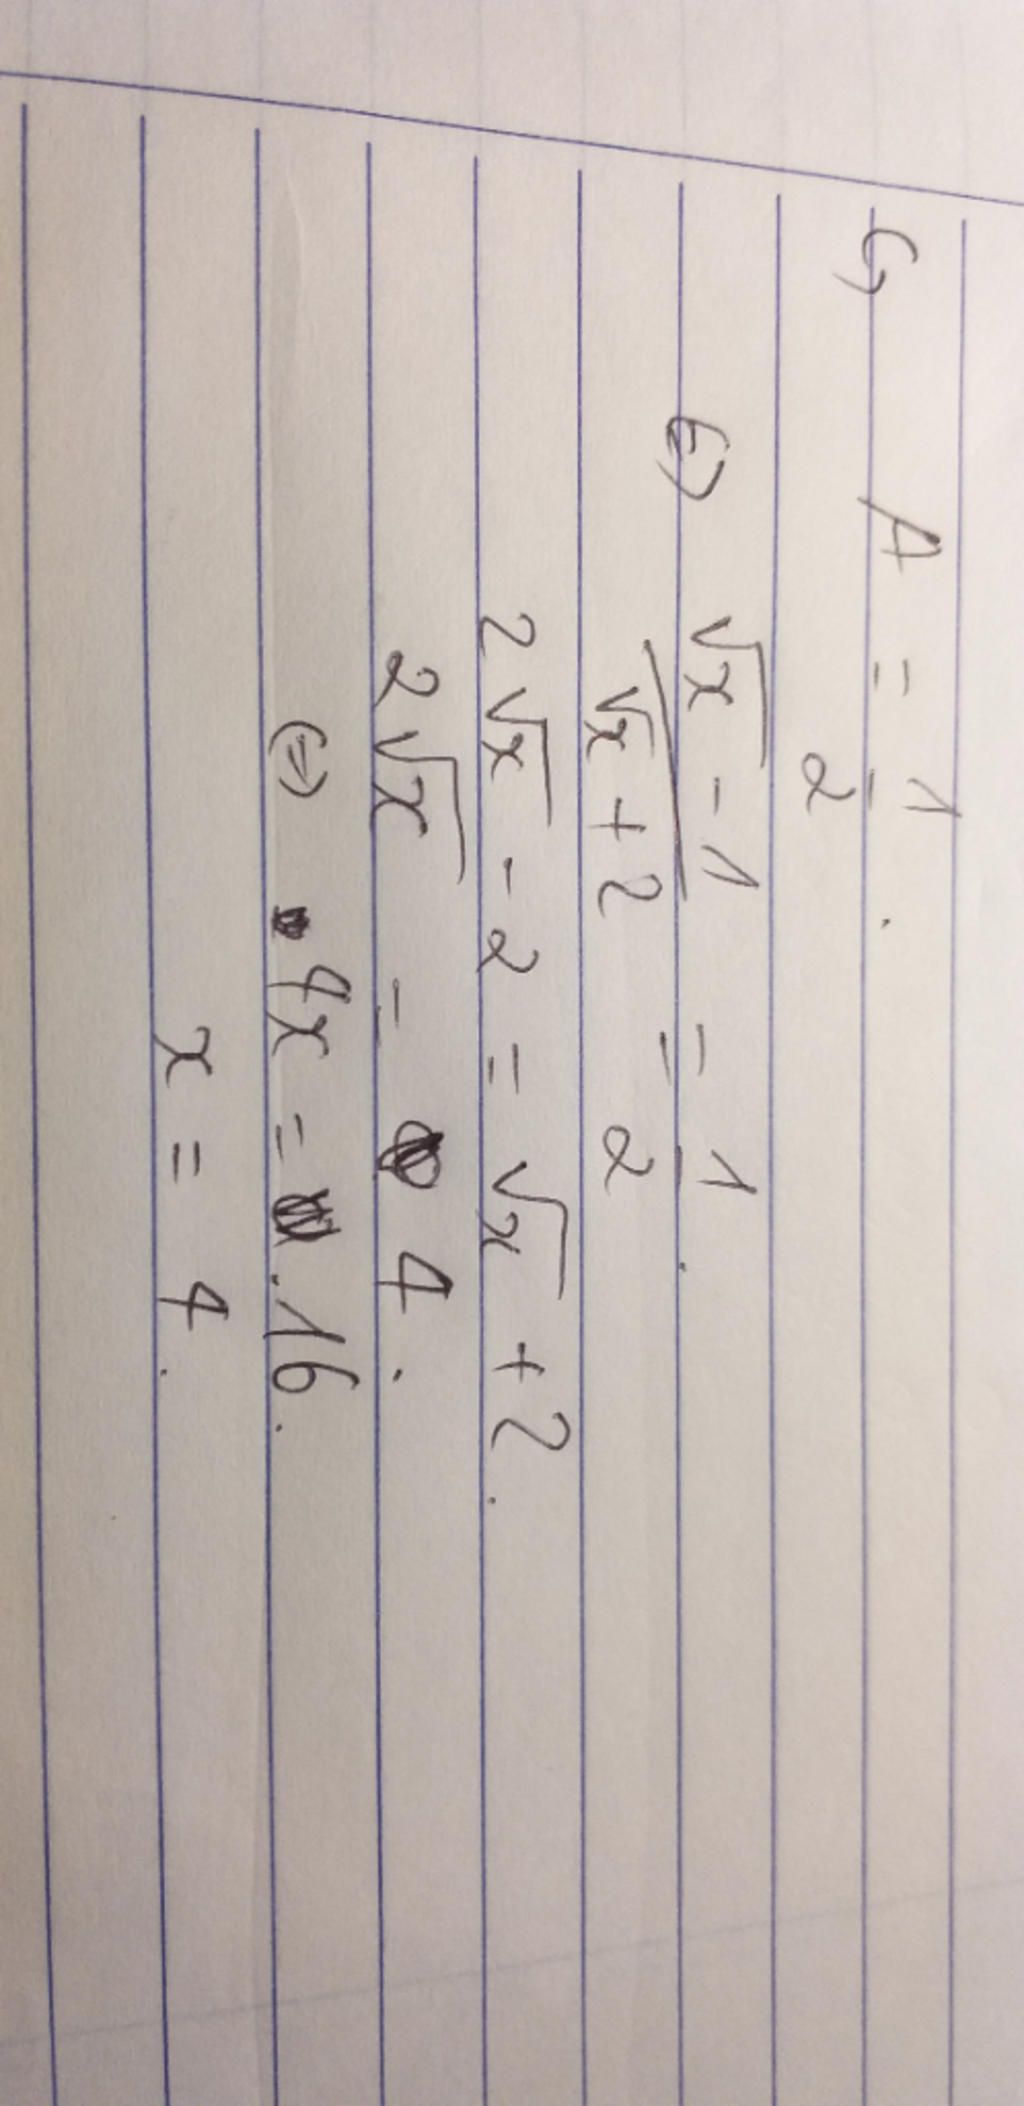 c, A = 1/2.
⇔ (√x - 1)/(√x + 2) = 1/2.
2√x - 2 = √x + 2.
2√x = 4.
⇔ 4x = 16.
x = 4.